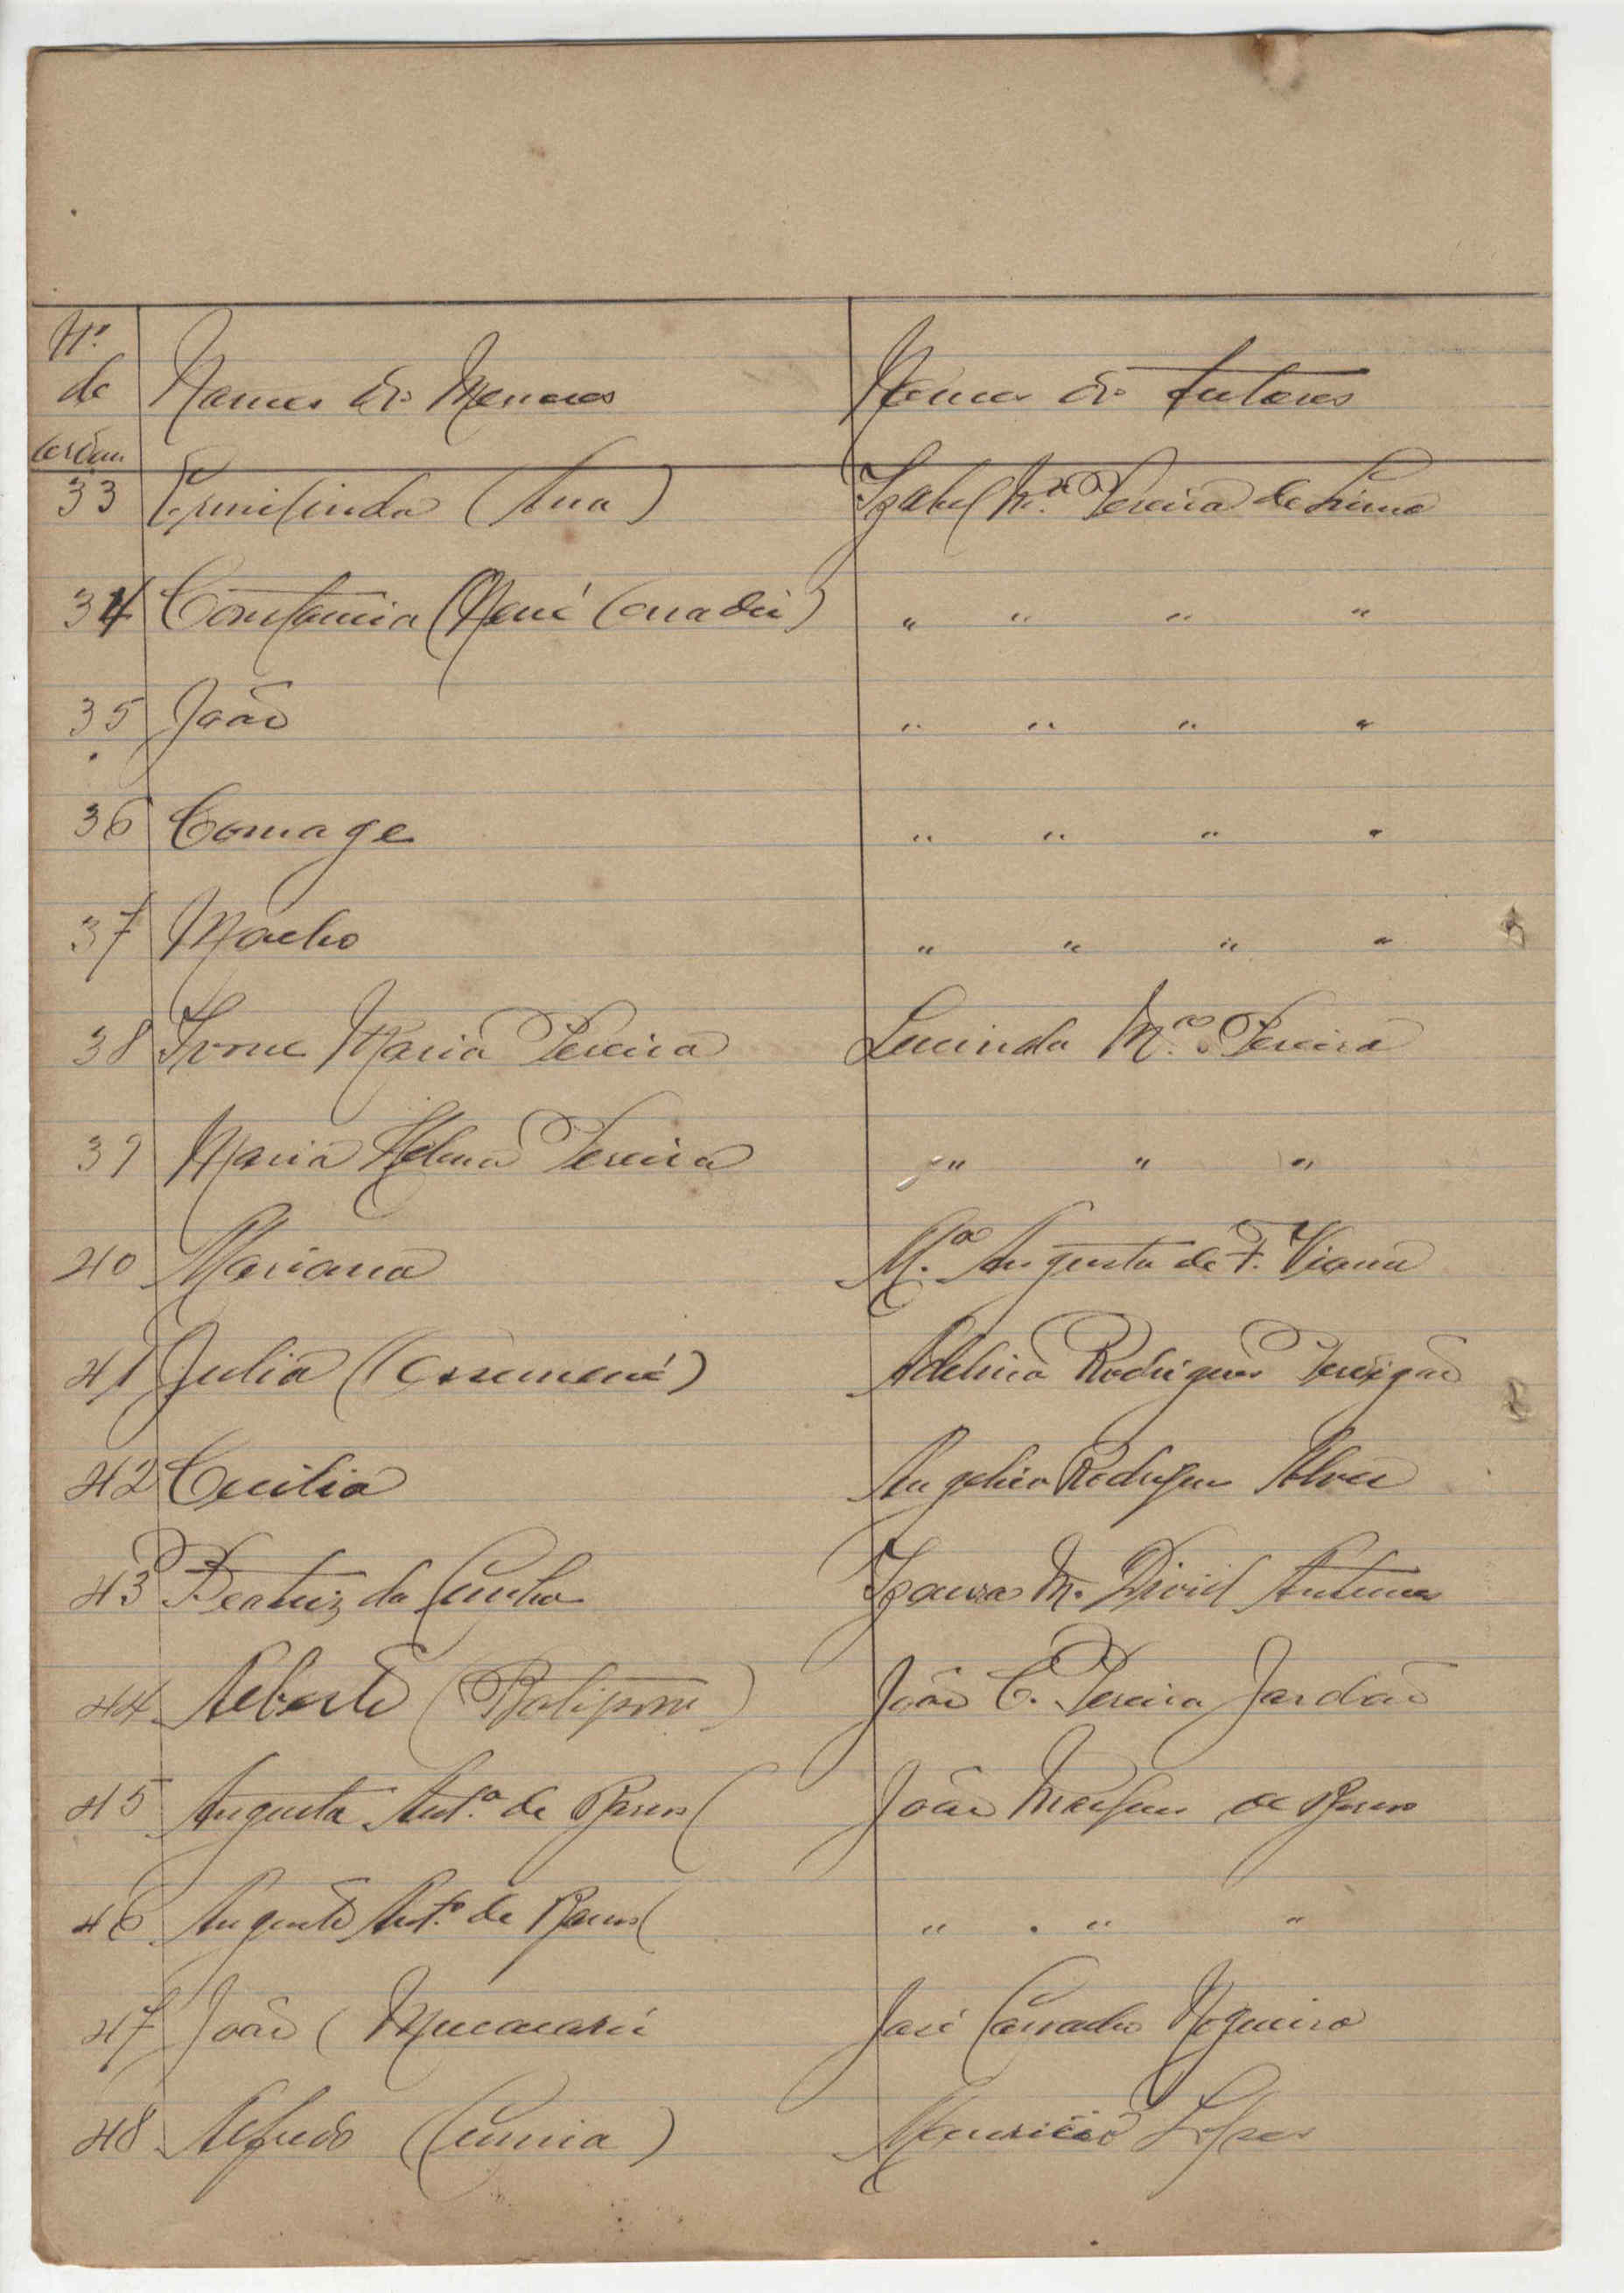 Nº
de Nomes dos Menores Nomes dos tutores
ordem
33 Ermilinda (Ana) Izabel M.ª Pereira de Lima
34 Constancia (Nené " " " "
35 João " " " "
36 Comage " " " "
37 Macho " " " "
38 Ivone Maria Pereira Lucinda M.ª Pereira
39 Maria Helena Pereira " " "
40 Mariana M.ª Augusta de F. Viana
41 Julia ( Adelina Rodrigues
42 Cecilia Angelica Rodrigues Alves
43 Beatriz da Cunha Izaura M. David Antunes
44 Alberto ( João C. Pereira Jardão
45 Augusta Ant.ª de Barros ( João Marques de Barros
46 Augusto Ant.º de Barros ( " " "
47 João ( José Nogueira
48 Alfredo ( Mauricio Lopes